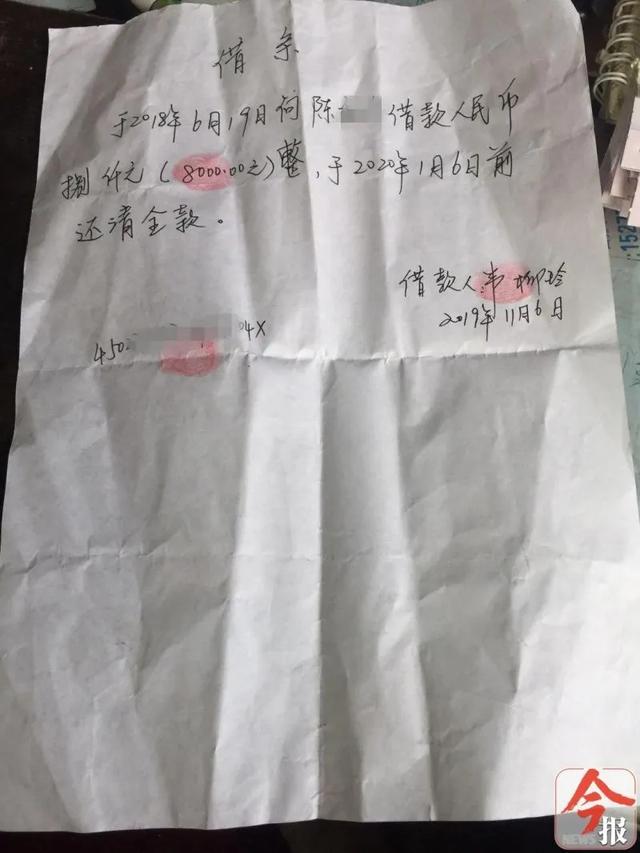 借条
于2018年6月19日向陈 借款人民币
捌仟元(8000.00元)整,于2020年1月6日前
还清全款。
借款人:韦柳玲
2019年11月6日
450 04X
今报
NEWS